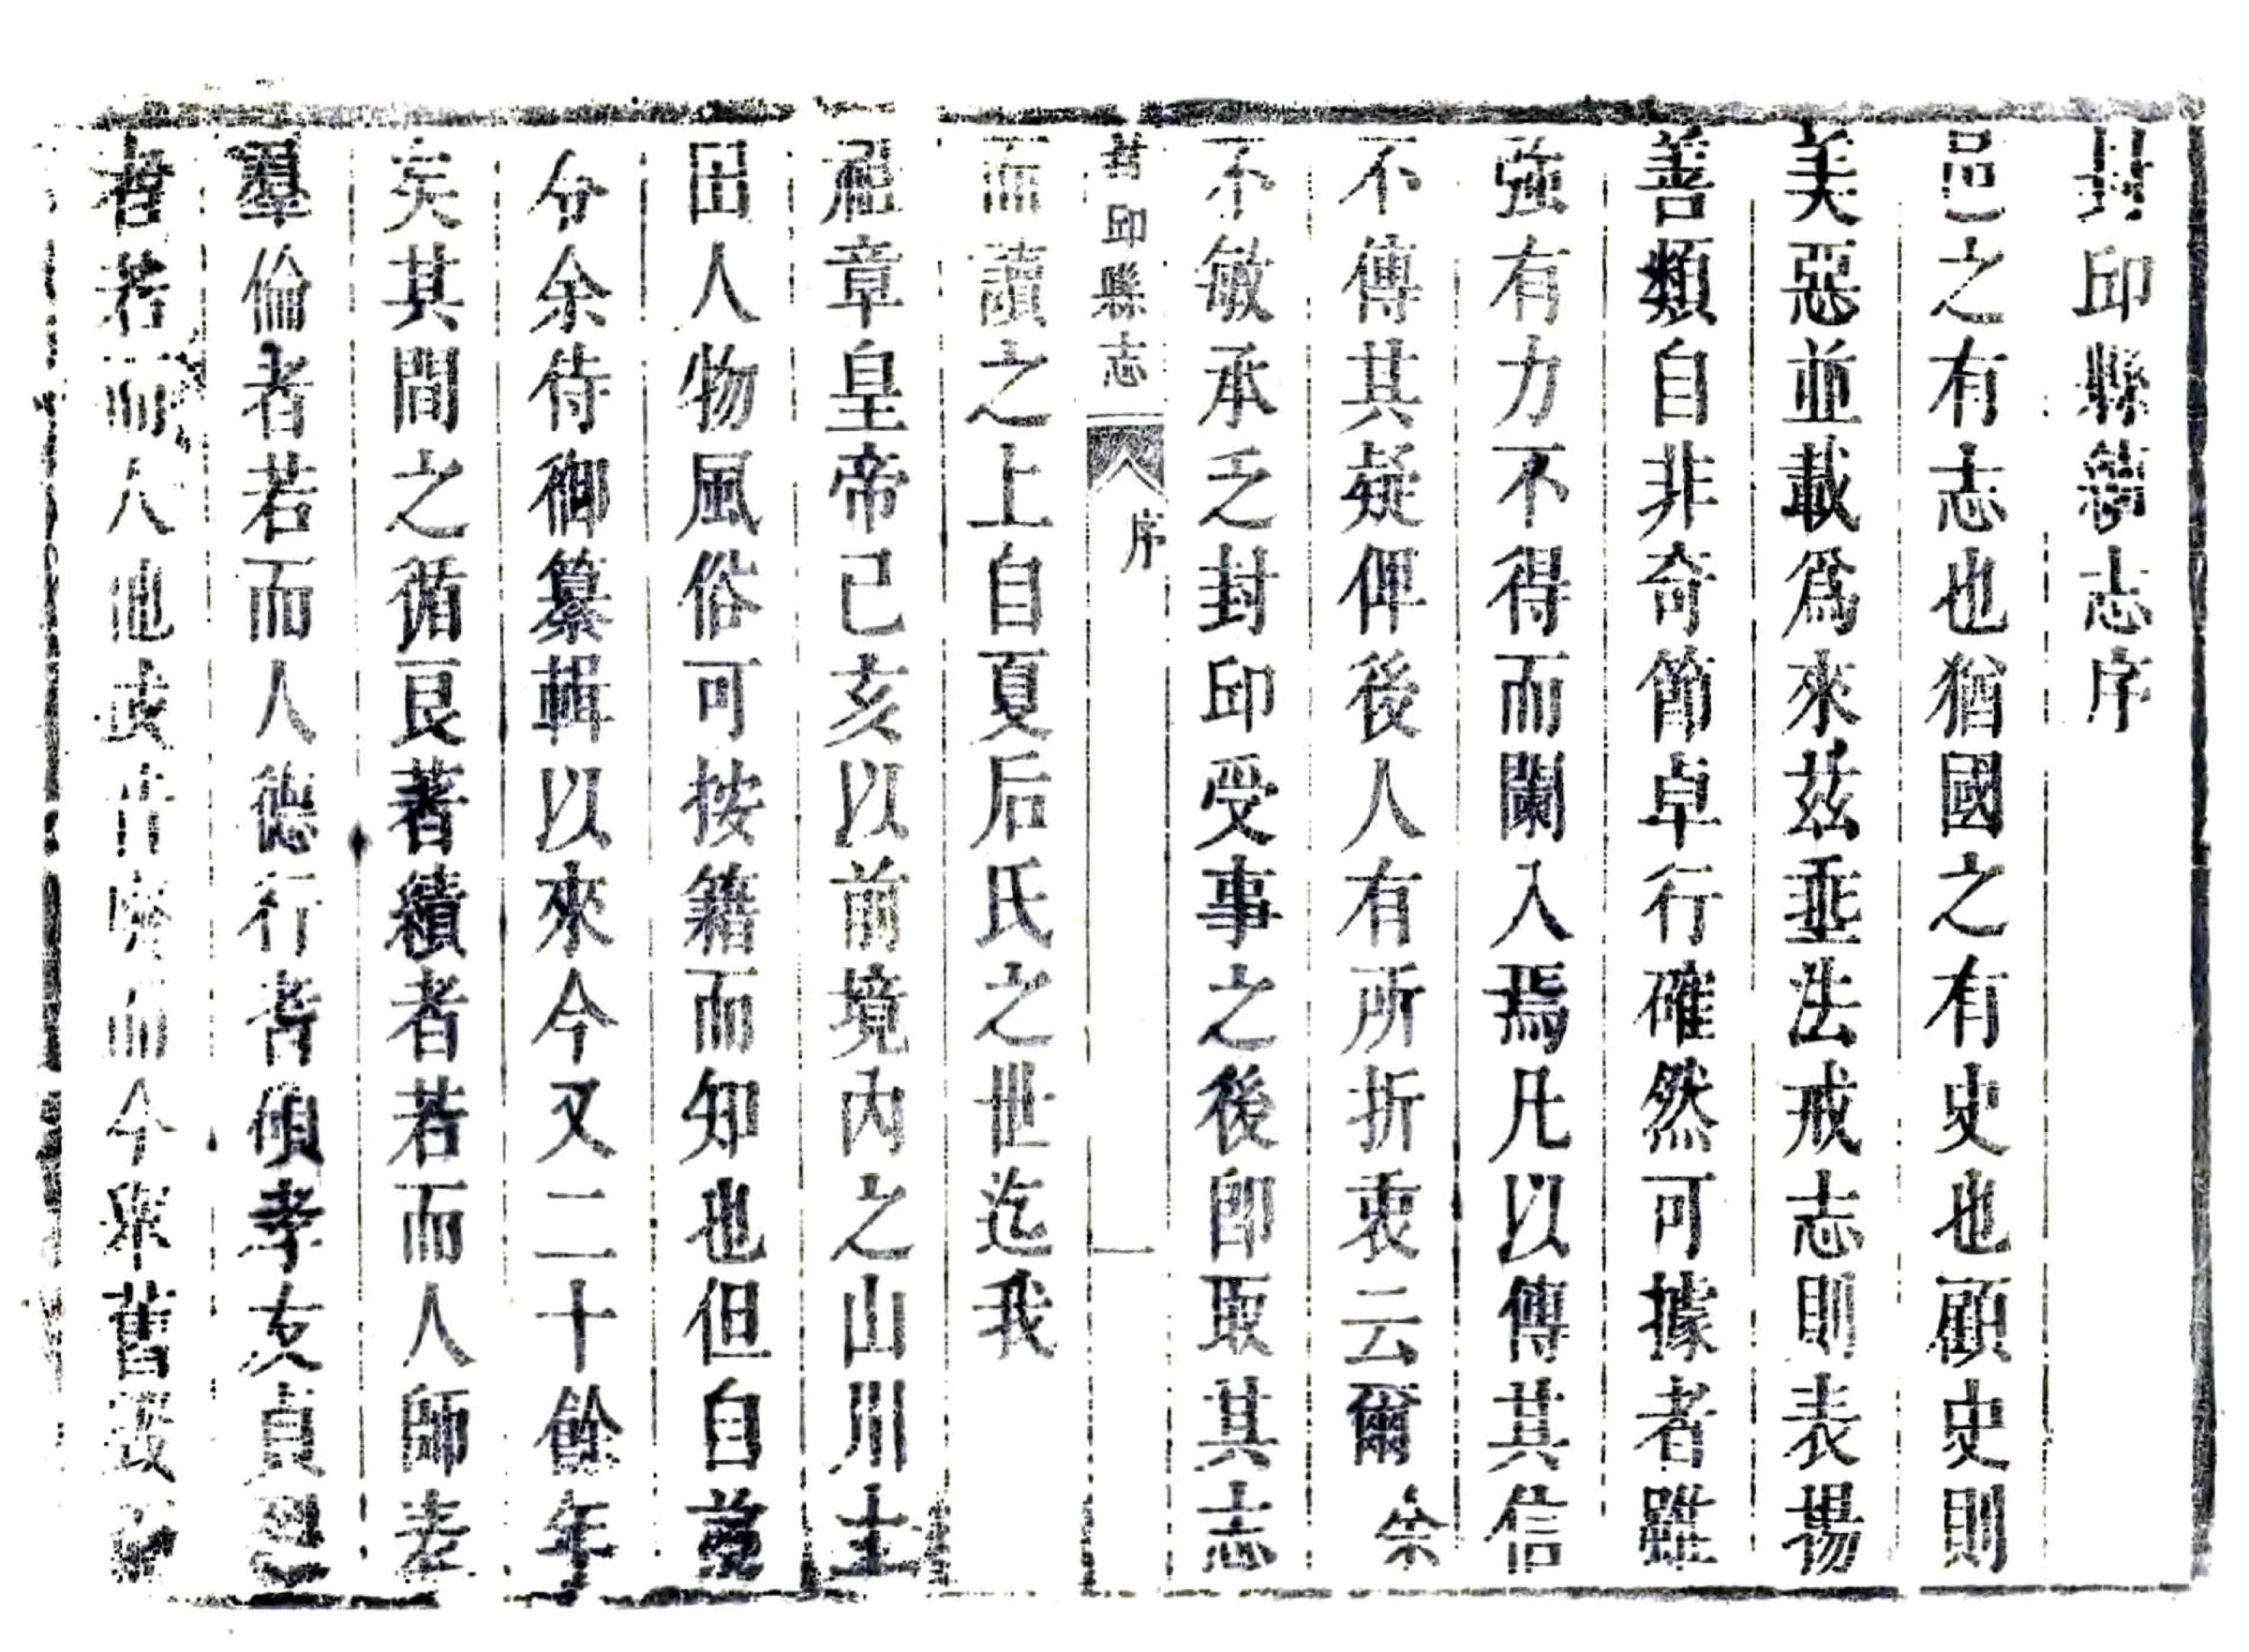 封邱縣續志序
邑之有志也猶國之有史也顧史則
美惡並載為來茲垂法戒志則表揚
善類自非奇節卓行確然可據者雖
強有力不得而闌入焉凡以傳其信
不傳其疑俾後人有所折衷云爾余
不敏承乏封邱受事之後卽取其志
封邱縣志 序 一
而讀之上自夏后氏之世迄我
章皇帝己亥以前境內之山川土
田人物風俗可按籍而知也但自
分余侍御纂輯以來今又二十餘年
矣其間之循良著績者若而人師表
羣倫者若而人德行耆碩孝友貞烈
者若而人也或昔廢而今舉舊